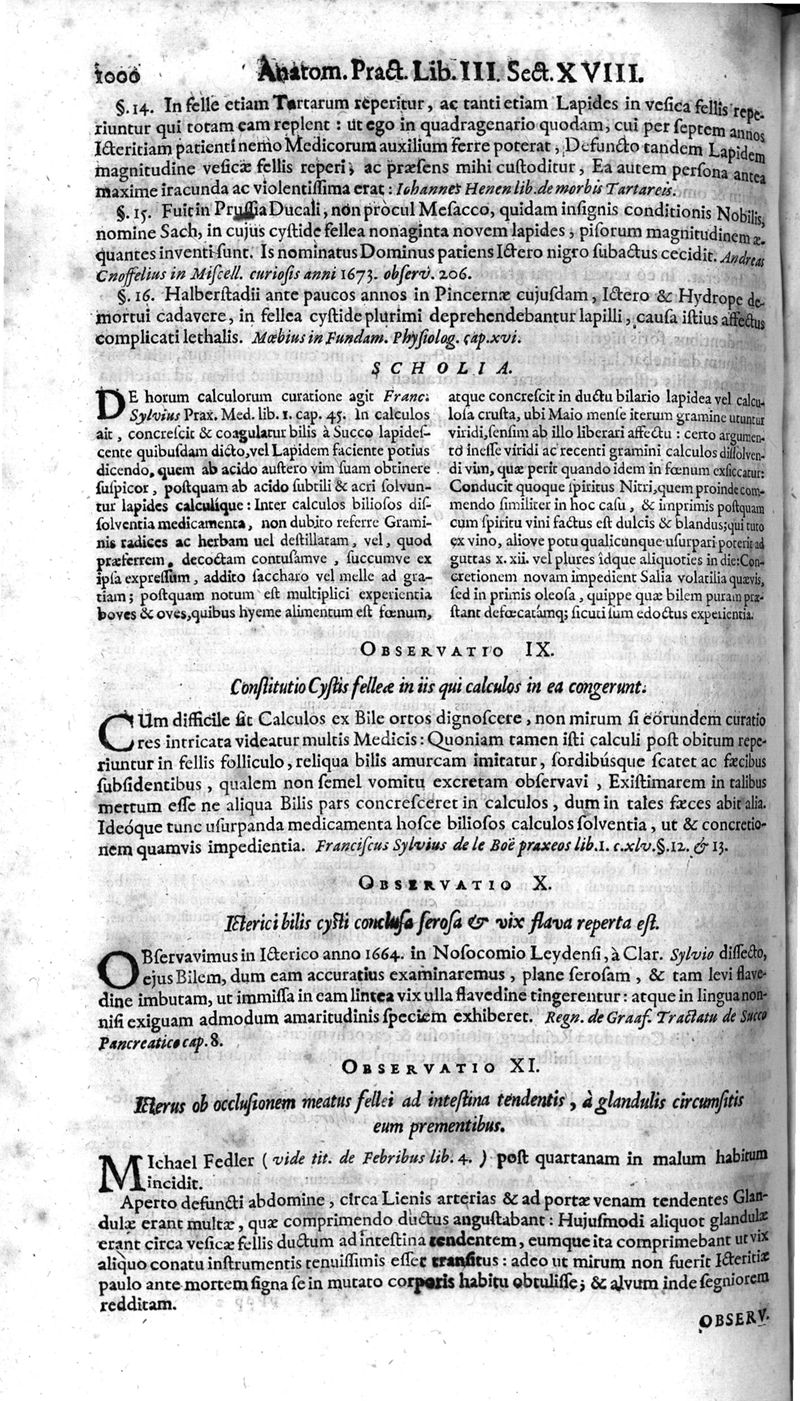 1000 Anatom. Pract. Lib. III. Sect. XVIII.
§. 14. In felle etiam Tartarum reperitur, ac tanti etiam Lapides in vesica fellis repe-
riuntur qui totam eam replent : ut ego in quadragenario quodam, cui per septem annos
Icteritiam patienti nemo Medicorum auxilium ferre poterat, Defuncto tandem Lapidem
magnitudine vesicæ fellis reperi, ac præsens mihi custoditur, Ea autem persona antea
maxime iracunda ac violentissima erat : Iohannes Henen lib. de morbis Tartareis.
§. 15. Fuit in Prussia Ducali, non procul Mesacco, quidam insignis conditionis Nobilis,
nomine Sach, in cujus cystide fellea nonaginta novem lapides, pisorum magnitudinem æ-
quantes inventi sunt. Is nominatus Dominus patiens Ictero nigro subactus cecidit. Andreas
Cnoffelius in Miscell. curiosis anni 1673. observ. 206.
§. 16. Halberstadii ante paucos annos in Pincernæ cujusdam, Ictero & Hydrope de-
mortui cadavere, in fellea cystide plurimi deprehendebantur lapilli, causa istius affectus
complicati lethalis. Mœbius in Fundam. Physiolog. cap. xvi.
SCHOLIA.
DE horum calculorum curatione agit Franc.
Sylvius Prax. Med. lib. 1. cap. 45. In calculos
ait, concrescit & coagulatur bilis à Succo lapides-
cente quibusdam dicto, vel Lapidem faciente potius
dicendo, quem ab acido austero vim suam obtinere
suspicor, postquam ab acido subtili & acri solvun-
tur lapides calculique : Inter calculos biliosos dis-
solventia medicamenta, non dubito referre Grami-
nis radices ac herbam uel destillatam, vel, quod
præferrem, decoctam contusamve, succumve ex
ipsa expressum, addito saccharo vel melle ad gra-
tiam; postquam notum est multiplici experientia
boves & oves, quibus hyeme alimentum est fœnum,
atque concrescit in ductu bilario lapidea vel calcu-
losa crusta, ubi Maio mense iterum gramine utuntur
viridi, sensim ab illo liberari affectu : certo argumen-
to inesse viridi ac recenti gramini calculos dissolven-
di vim, quæ perit quando idem in fœnum exsiccatur:
Conducit quoque spiritus Nitri, quem proinde com-
mendo similiter in hoc casu, & imprimis postquam
cum spiritu vini factus est dulcis & blandus; qui tuto
ex vino, aliove potu qualicunque usurpari poterit ad
guttas x. xii. vel plures îdque aliquoties in die: Con-
cretionem novam impedient Salia volatilia quævis,
sed in primis oleosa, quippe quæ bilem puram præ-
stant defœcatámq; sicuti sum edoctus experientia.
OBSERVATIO IX.
Constitutio Cystis felleæ in iis qui calculos in ea congerunt.
CUm difficile sit Calculos ex Bile ortos dignoscere, non mirum si eorundem curatio
res intricata videatur multis Medicis : Quoniam tamen isti calculi post obitum repe-
riuntur in fellis folliculo, reliqua bilis amurcam imitatur, sordibúsque scatet ac fæcibus
subsidentibus, qualem non semel vomitu excretam observavi, Existimarem in talibus
metuum esse ne aliqua Bilis pars concresceret in calculos, dum in tales fæces abit alia.
Ideóque tunc usurpanda medicamenta hosce biliosos calculos solventia, ut & concretio-
nem quamvis impedientia. Franciscus Sylvius de le Boë praxeos lib. 1. c. xlv. §. 12. & 13.
OBSERVATIO X.
Icterici bilis cysti conclusa serosa & vix flava reperta est.
OBservavimus in Icterico anno 1664. in Nosocomio Leydensi, à Clar. Sylvio dissecto,
ejus Bilem, dum eam accuratius examinaremus, plane serosam, & tam levi flave-
dine imbutam, ut immissa in eam lintea vix ulla flavedine tingerentur : atque in lingua non-
nisi exiguam admodum amaritudinis speciem exhiberet. Regn. de Graaf. Tractatu de Succo
Pancreatico cap. 8.
OBSERVATIO XI.
Icterus ob occlusionem meatus fellei ad intestina tendentis, à glandulis circumsitis
eum prementibus.
MIchael Fedler ( vide tit. de Febribus lib. 4. ) post quartanam in malum habitum
incidit.
Aperto defuncti abdomine, circa Lienis arterias & ad portæ venam tendentes Glan-
dulæ erant multæ, quæ comprimendo ductus angustabant : Hujusmodi aliquot glandulæ
erant circa vesicæ fellis ductum ad intestina tendentem, eumque ita comprimebant ut vix
aliquo conatu instrumentis tenuissimis esset transitus : adeo ut mirum non fuerit Icteritiæ
paulo ante mortem signa se in mutato corporis habitu obtulisse; & alvum inde segniorem
redditam.
OBSERV.